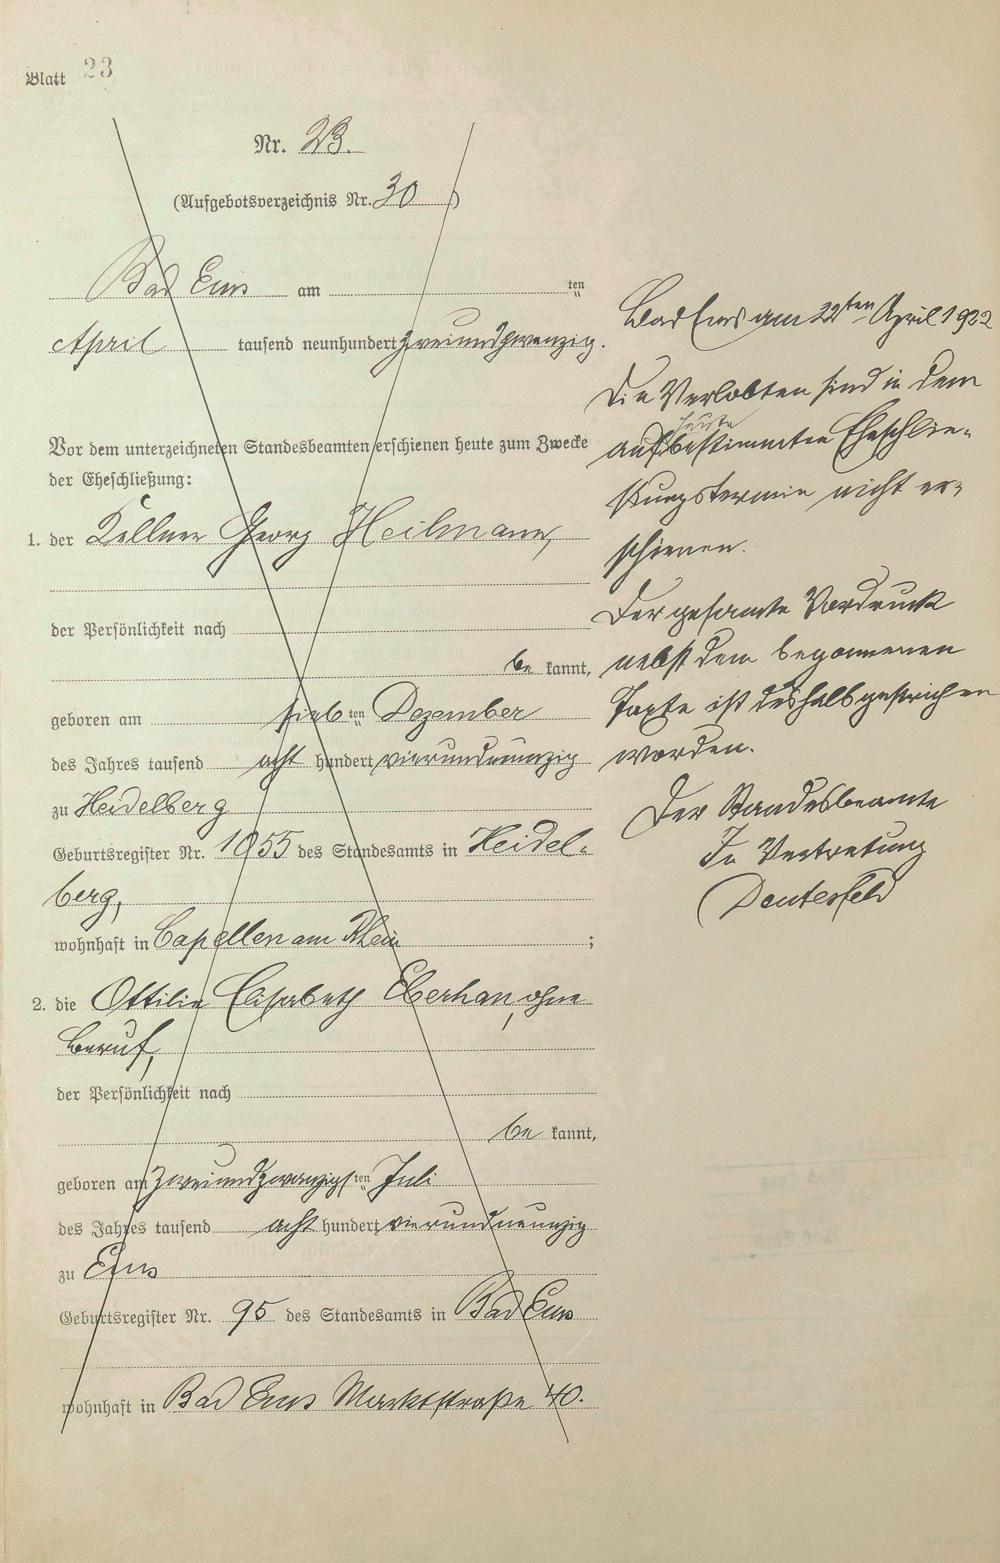 Blatt 23
Nr. 23.
(Aufgebotsverzeichnis Nr. 30)
Bad Ems am ten
April tausend neunhundert zweiundzwanzig.
Vor dem unterzeichneten Standesbeamten erschienen heute zum Zwecke
der Eheschließung:
1. der Kellner Georg Heilmann,
der Persönlichkeit nach
be kannt,
geboren am sieb ten Dezember
des Jahres tausend acht hundert vierundneunzig
zu Heidelberg
Geburtsregister Nr. 1955 des Standesamts in Heidel-
berg,
wohnhaft in Capellen am Rhein ;
2. die Ottilie Elisabeth Eberhan, ohne
Beruf,
der Persönlichkeit nach
be kannt,
geboren am zweiundzwanzigsten Juli
des Jahres tausend acht hundert vierundneunzig
zu Ems
Geburtsregister Nr. 95 des Standesamts in Bad Ems
wohnhaft in Bad Ems Marktstraße 40.
Bad Ems am 22ten April 1922
Die Verlobten sind in dem
auf heute bestimmten Eheschlie-
ßungstermin nicht er-
schienen.
Der gesamte Vordruck
nebst dem begonnenen
Texte ist deshalb gestrichen
worden.
Der Standesbeamte
In Vertretung